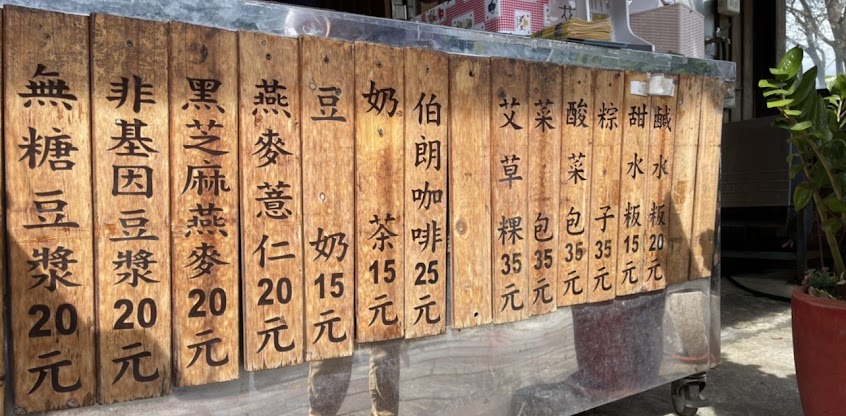 無糖豆漿20元
非基因豆漿20元
黑芝麻燕麥20元
燕麥薏仁20元
豆奶15元
奶茶15元
伯朗咖啡25元
艾草粿35元
菜包35元
酸菜包35元
粽子35元
甜水粄15元
鹹水粄20元